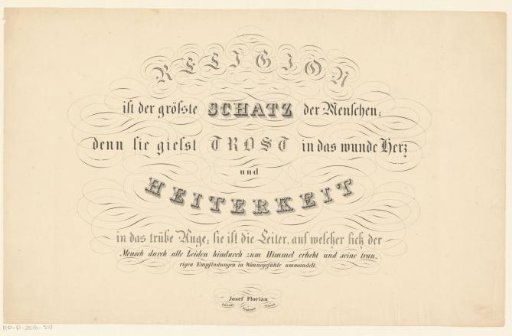 RELIGION
iſt der gröſste SCHATZ der Menſchen;
denn ſie gieſst TROST in das wunde Herz
und
HEITERKEIT
in das trübe Auge; ſie iſt die Leiter, auf welcher ſich der
Mensch durch alle Leiden hindurch zum Himmel erhebt und seine trau-
rigen Empfindungen in Wonnegefühle umwandelt.
Josef Florian